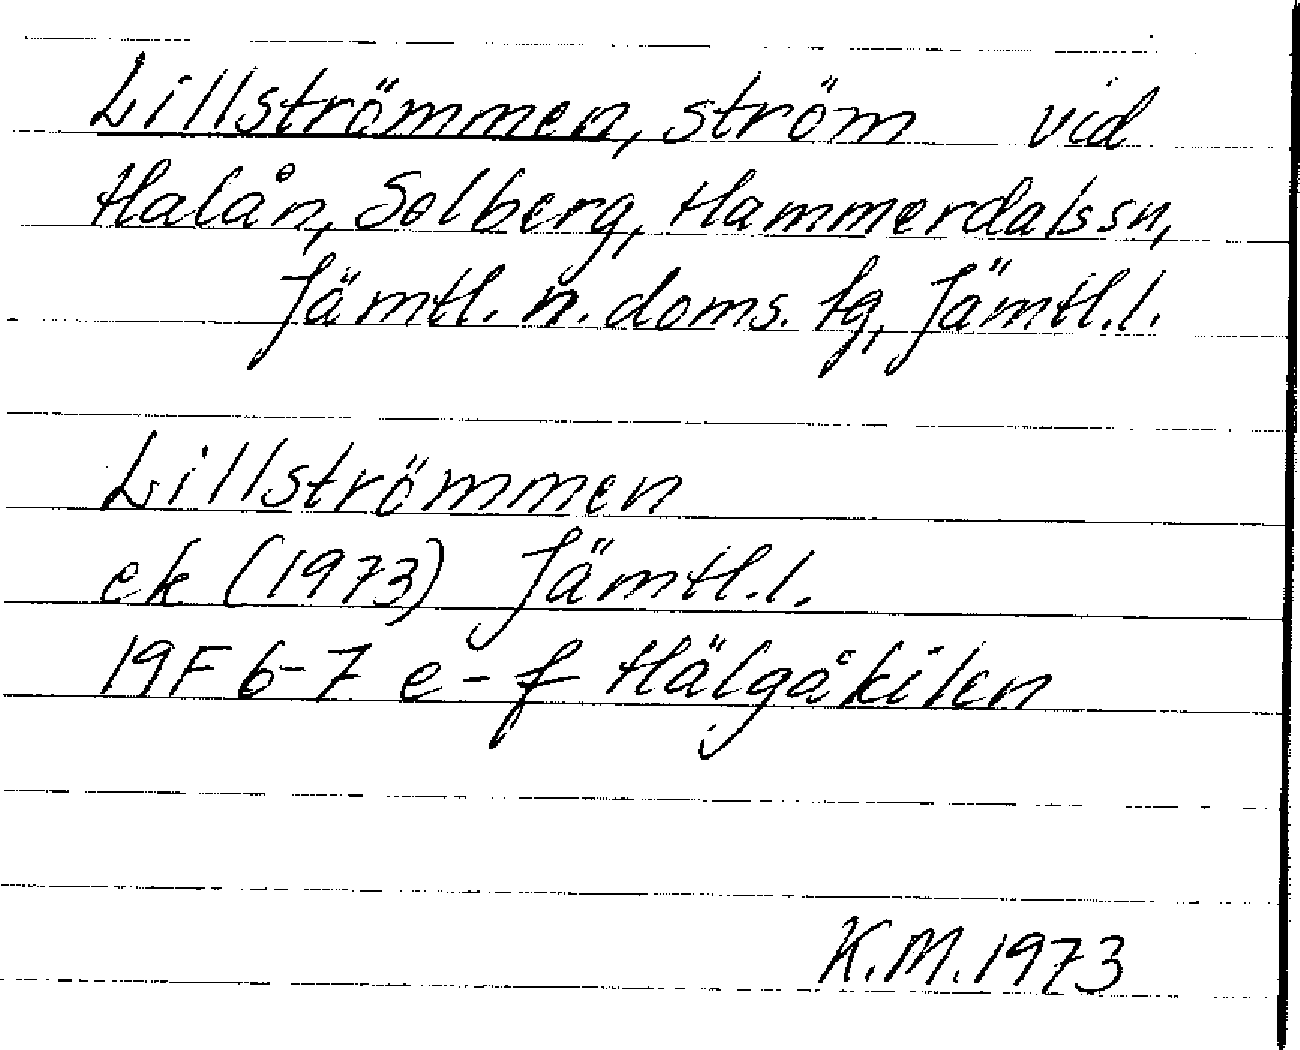 Lillströmmen, ström vid
Halån, Solberg, Hammerdalssn,
Jämtl. n. doms. tg, Jämtl. l.
Lillströmmen
ek (1973) Jämtl. l.
19F 6-7 e-f Hälgåkilen
K.M. 1973